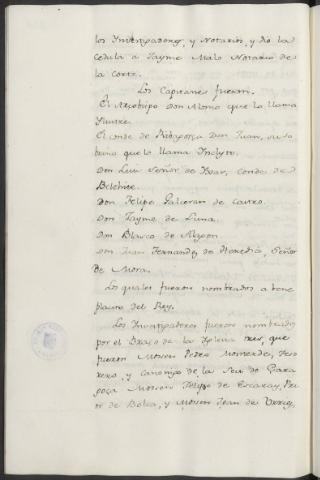 los Investigadores, y Notarios, y dio la
cedula a Jayme Malo Notario de
la corte.
Los Capitanes fueron.
El Arzobispo Don Alonso que lo llama
Ilustre.
El conde de Ribagorça Don Juan, su so
brino que lo llama Inclyto.
Don Luis Señor de Ixar, conde de
Belchite.
Don Felipe Galceran de Castro.
Don Jayme de Luna.
Don Blasco de Alagon.
Don Juan Fernandez de Heredia, Señor
de Mora.
Los quales fueron nombrados a bene
placito del Rey.
Los Investigadores fueron nombrados
por el Brazo de la Iglesia tres, que
fueron Mossen Pedro Monterde, teso
rero, y canonigo de la Seu de Zara
goça Mossen Felipe de Pri
or de Bolea, y Mossen Juan de Urries,